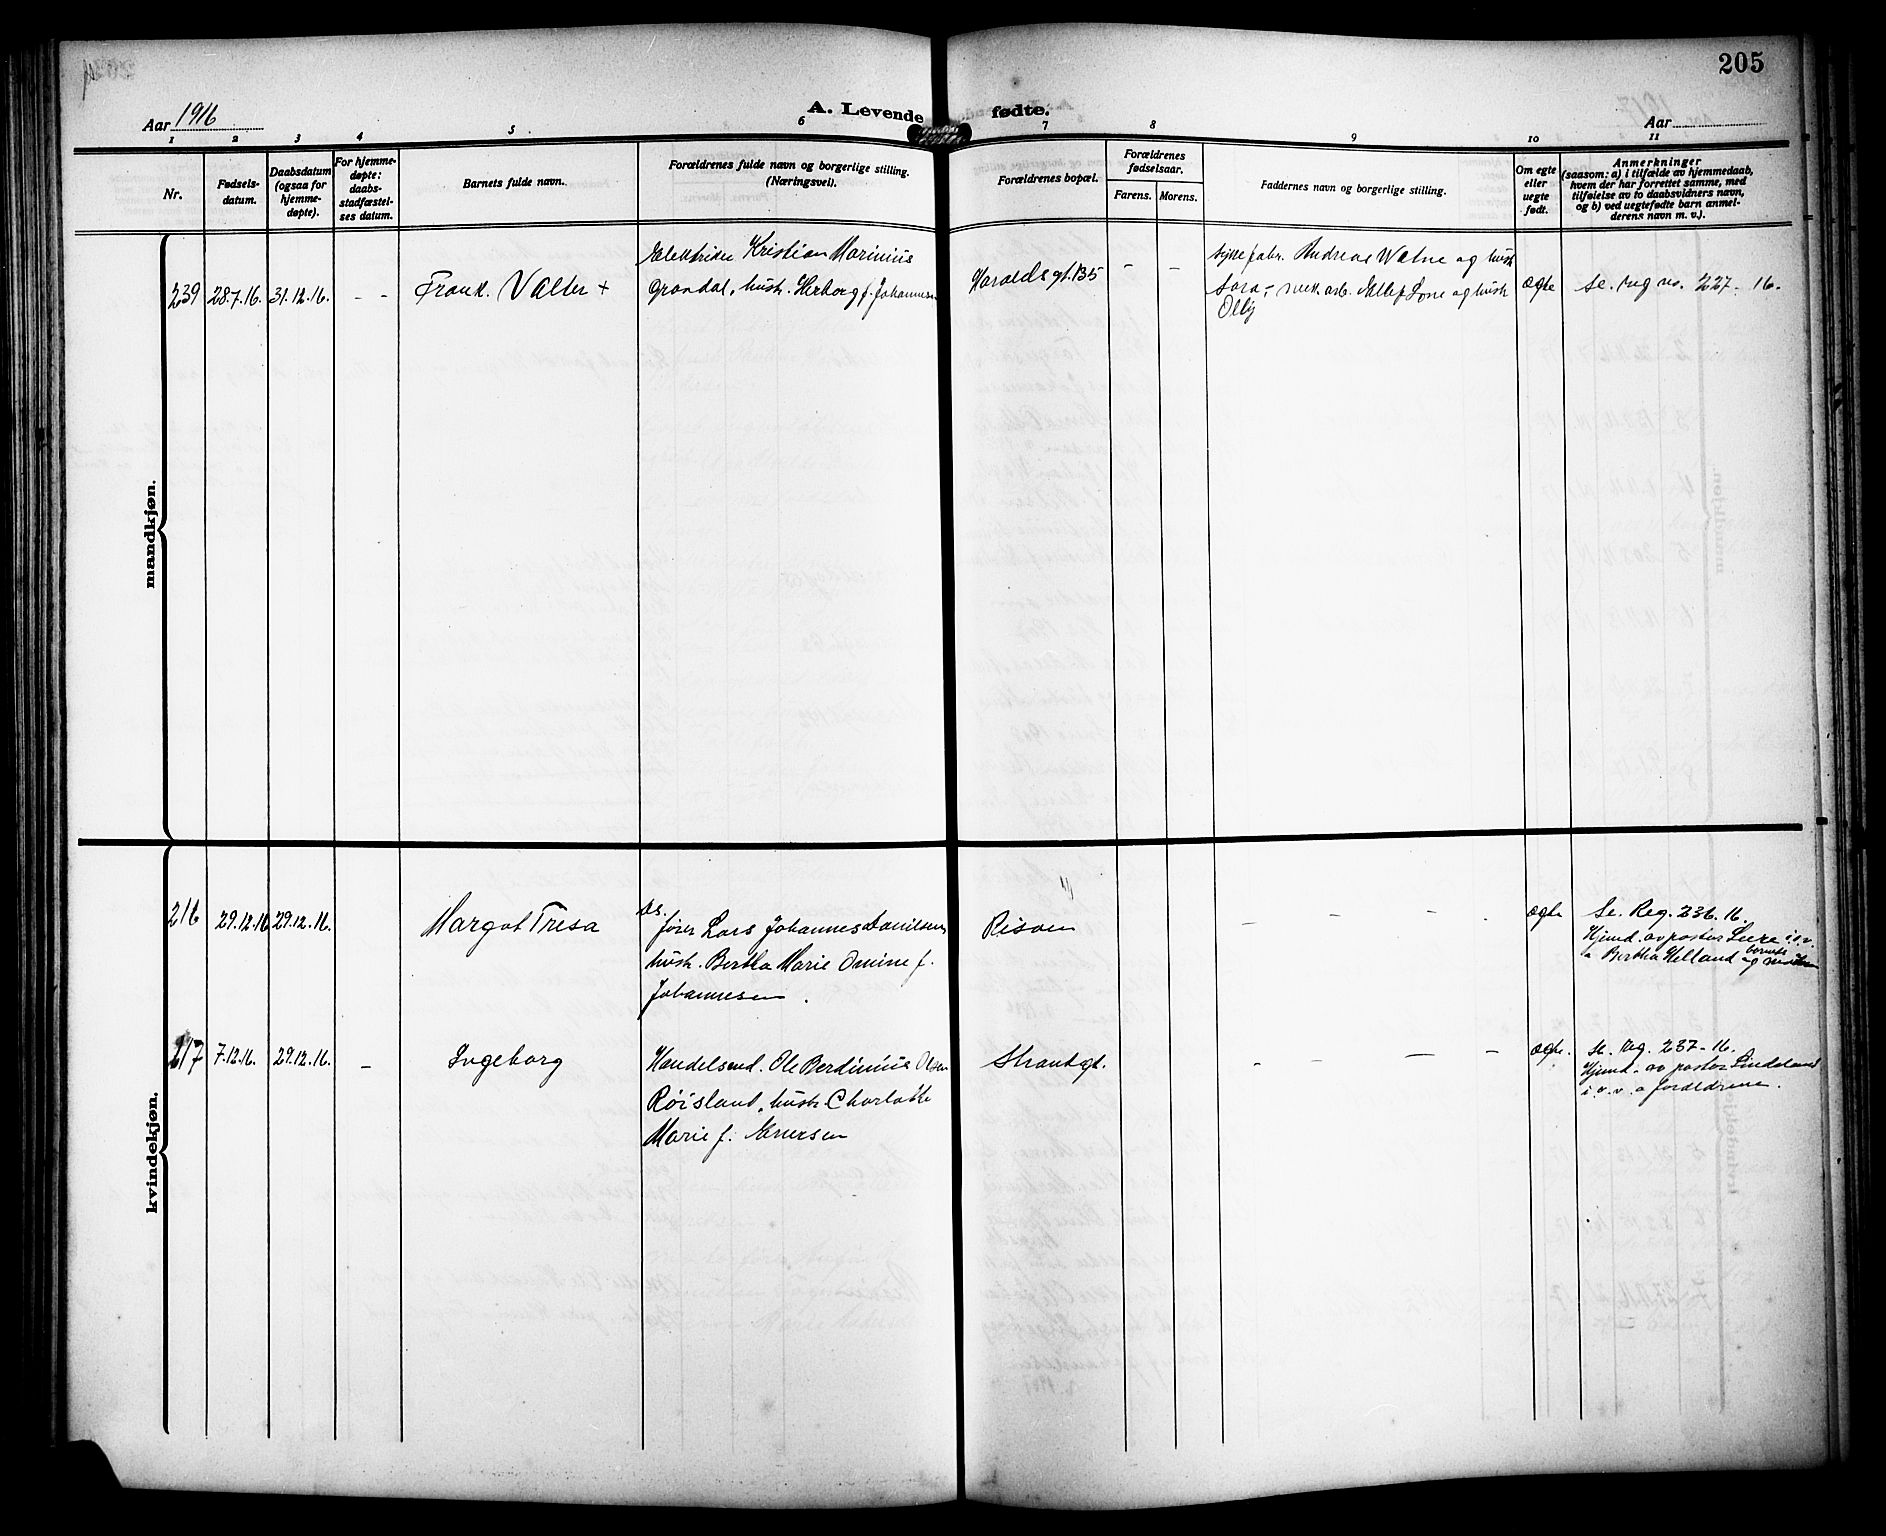 205
Aar 1916
A. Levende fødte.
Aar
1 2 3 4 5 6 7 8 9 10 11
Nr.
Fødsels-
datum.
Daabsdatum
(ogsaa for
hjemme-
døpte).
For hjemme-
døpte:
daabs-
stadfæstel-
ses datum.
Barnets fulde navn.
Forældrenes fulde navn og borgerlige stilling.
(Næringsvei).
Forældrenes bopæl.
Forældrenes
fødselsaar.
Farens. Morens.
Faddernes navn og borgerlige stilling.
Om egte
eller
uegte
født.
Anmerkninger
(saasom: a) i tilfælde av hjemmedaab,
hvem der har forrettet samme, med
tilføielse av to daabsvidners navn,
og b) ved uegtefødte barn anmel-
derens navn m. v.).
mandkjøn.
239
28.7.16.
31.12.16.
- -
Frank. Valter +
Elektriker Kristian Marinius
Grandal, hustr. Herborg f. Johannesen
Haraldsgt. 135
- -
Andreas Watne og hustr
Sara - mek. arb. og hustr
Olly
ægte
Se. reg no. 227 - 16.
kvindekjøn.
216
29.12.16
29.12.16.
Margot Tresa
os.
fører Lars Johannes Danielsen,
hustr. Bertha Marie Omine f.
Johannesen.
Risøen
- - - .
ægte
Se. Reg. 236. 16.
Hjemd. av pastor Lere i.o.v.
a Bertha Helland og barnets
217
7.12.16.
29.12.16.
-
Ingeborg
Handelsmd. Ole Berdinius Olsen
Røisland, hustr. Charlotte
Marie f. Iversen
Strandgt.
- - - -
ægte.
Se. Reg. 237-16.
Hjemd. av pastor Lindeland
i.o.v. a foreldrene.